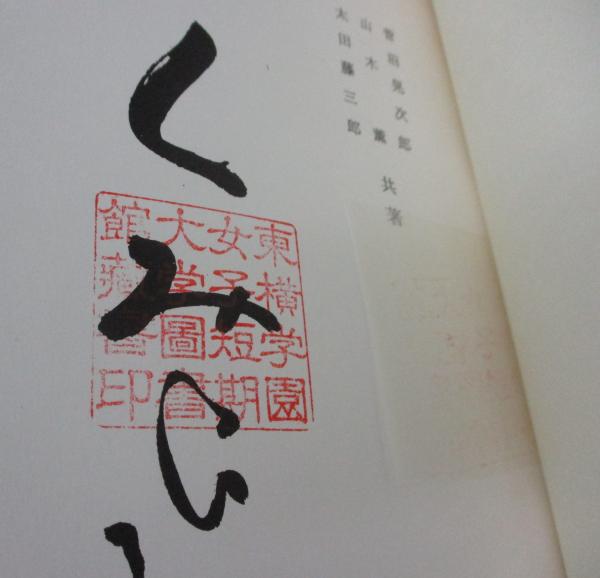 菅沼晃次郎
山本薫
太田藤三郎
共著
くみひ
東横学園
女子短期
大学圖書
館藏書印